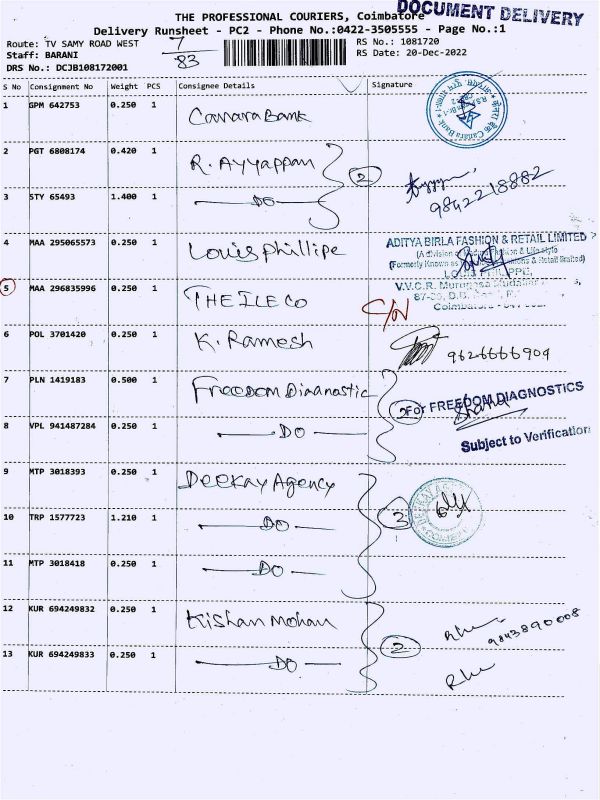 DOCUMENT DELIVERY
THE PROFESSIONAL COURIERS, Coimbatore
Delivery Runsheet - PC2 - Phone No.:0422-3505555 - Page No.:1
Route: TV SAMY ROAD WEST
7
RS No.: 1081720
Staff: BARANI
83
RS Date: 20-Dec-2022
DRS No.: DCJB108172001
S No Consignment No Weight PCS Consignee Details Signature
1 GPM 642753 0.250 1 Canara Bank
Canara Bank
2 PGT 6808174 0.420 1 R. Ayyappan
2
9842218882
3 STY 65493 1.400 1 DO
4 MAA 295065573 0.250 1 Louis phillipe
ADITYA BIRLA FASHION & RETAIL LIMITED
(A division
(Formerly Known as & Retail limited)
LOUIS PHILIPPE,
V.V.C.R.
Coimbatore
5 MAA 296835996 0.250 1 THE ILE CO
C/N
6 POL 3701420 0.250 1 K. Ramesh
9626666909
7 PLN 1419183 0.500 1 Freedom Diagnostic
2
For FREEDOM DIAGNOSTICS
8 VPL 941487284 0.250 1 DO
Subject to Verification
9 MTP 3018393 0.250 1 Deekay Agency
3
10 TRP 1577723 1.210 1 DO
11 MTP 3018418 0.250 1 DO
12 KUR 694249832 0.250 1 Kishan Mohan
9843890008
2
13 KUR 694249833 0.250 1 DO